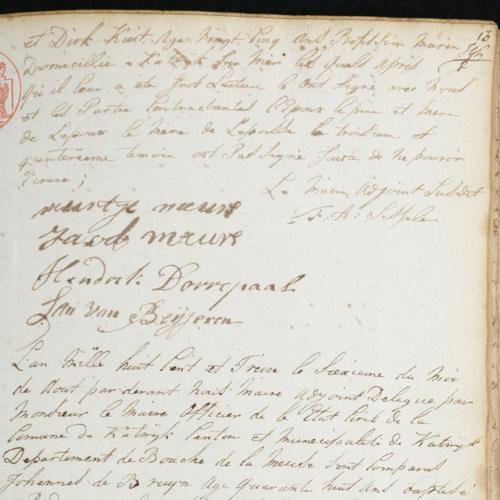 et Dirk Kuit age Vingt Cinq ans Profession Marin
Domicilié a Katwyk Sur Mer les quels après
qu'il leur a été fait Lecture le ont Signé avec Nous
et les Partie Contractantes
de Lepoux la Mère de Lepouse la troisieme et
quatrieme temoin ont Pas Signé faute de ne pouvoir
Ecrire;
Le Maire Adjoint Susdit
meure
Jacob meure
Hendrik Dorrepaal
Jan Van Beyjeren
L'an Mille huit Cent et Treize le Sixieme du Mois
de Aout par devant Nous Maire Adjoint Delegue par
Monsieur le Maire Officier de le Etat Civil de la
Comune de Katwyk Canton et municipalité de Katwyk
Departement de Bouche de la Meuse sont Comparus
Johannes de Bruyn Age quarante huit ans